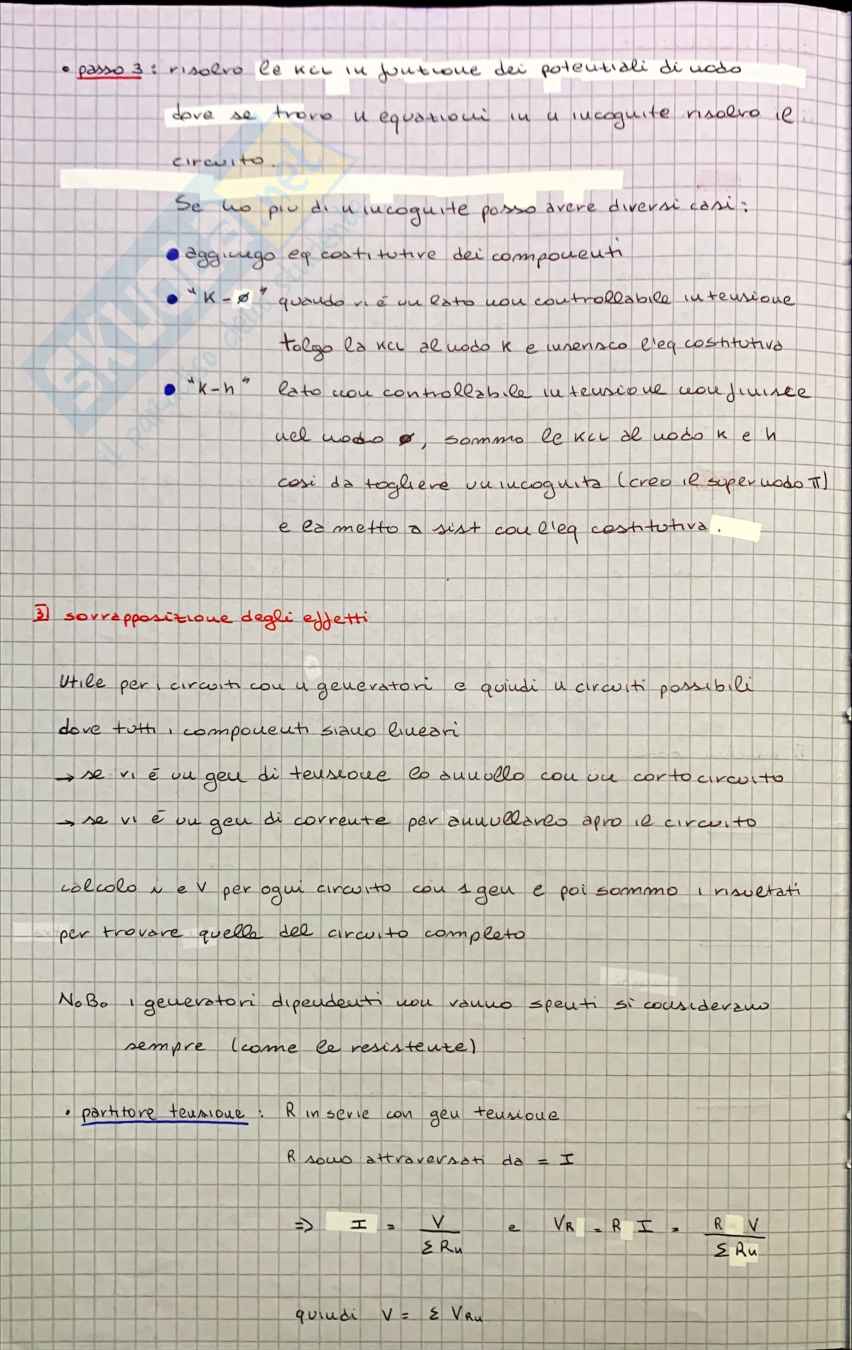 • passo 3 : risolvo le KCL in funzione dei potenziali di nodo
dove se trovo n equazioni in n incognite risolvo il
circuito.
Se ho più di n incognite posso avere diversi casi :
• aggiungo eq costitutive dei componenti
• "K-ø" quando vi è un lato non controllabile in tensione
tolgo la KCL al nodo K e inserisco l'eq costitutiva
• "K-h" lato non controllabile in tensione non finisce
nel nodo ø, sommo le KCL al nodo K e h
così da togliere un incognita (creo il supernodo π)
e la metto a sist con l'eq costitutiva.
3] sovrapposizione degli effetti
Utile per i circuiti con n generatori e quindi n circuiti possibili
dove tutti i componenti siano lineari
→ se vi è un gen di tensione lo annullo con un cortocircuito
→ se vi è un gen di corrente per annullarlo apro il circuito
calcolo i e V per ogni circuito con 1 gen e poi sommo i risultati
per trovare quella del circuito completo
N.B. i generatori dipendenti non vanno spenti si considerano
sempre (come le resistenze)
• partitore tensione : R in serie con gen tensione
R sono attraversati da = I
=> I = V / Σ Rn e VR = R I = R V / Σ Rn
quindi V = Σ VRn
SKUOLA.net
il paradiso dello studente